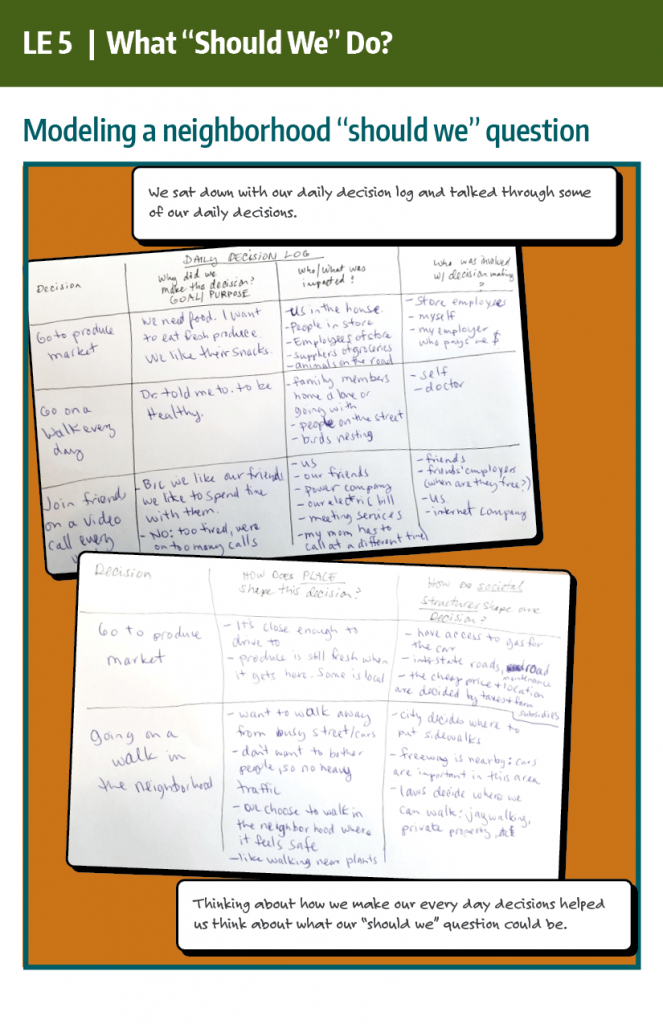 LE 5 | What “Should We” Do?
Modeling a neighborhood “should we” question
We sat down with our daily decision log and talked through some
of our daily decisions.
DAILY DECISION LOG
Decision
Why did we
make this decision?
GOAL/PURPOSE
Who/What was
impacted?
Who was involved
w/ decision making
?
Go to produce
market
We need food. I want
to eat fresh produce.
We like their snacks.
- us in the house.
- People in store
- Employees of store
- suppliers of groceries
- animals on the road
- Store employees
- myself
- my employer
who pays me $
Go on a
walk every
day
Dr. told me to. to be
Healthy.
- family members
home alone or
going with
- people on the street
- birds nesting
- self
- doctor
Join friend
on a video
call every
- B/c we like our friends
we like to spend time
with them.
- NO: too tired, were
on too many calls
- us
- our friends
- power company
- our electric bill
- meeting services
- my mom has to
call at a different time
- friends
- friends' employers
(when are they free?)
- us
- internet company
Decision
HOW DOES PLACE
shape this decision?
How do societal
structures shape our
Decision?
Go to produce
market
- It's close enough to
drive to
- produce is still fresh when
it gets here. Some is local
- have access to gas for
the car
state roads, road
maintenance
- the cheap price + location
are decided by taxes + farm
subsidies
going on a
walk in
the neighborhood
- want to walk away
from busy street/cars
- don't want to bother
people, so no heavy
traffic
- We choose to walk in
the neighborhood where
it feels safe
- like walking near plants
- city decides where to
put sidewalks
- freeway is nearby: cars
are important in this area
- laws decide where we
can walk: jaywalking,
private property,
Thinking about how we make our every day decisions helped
us think about what our “should we” question could be.